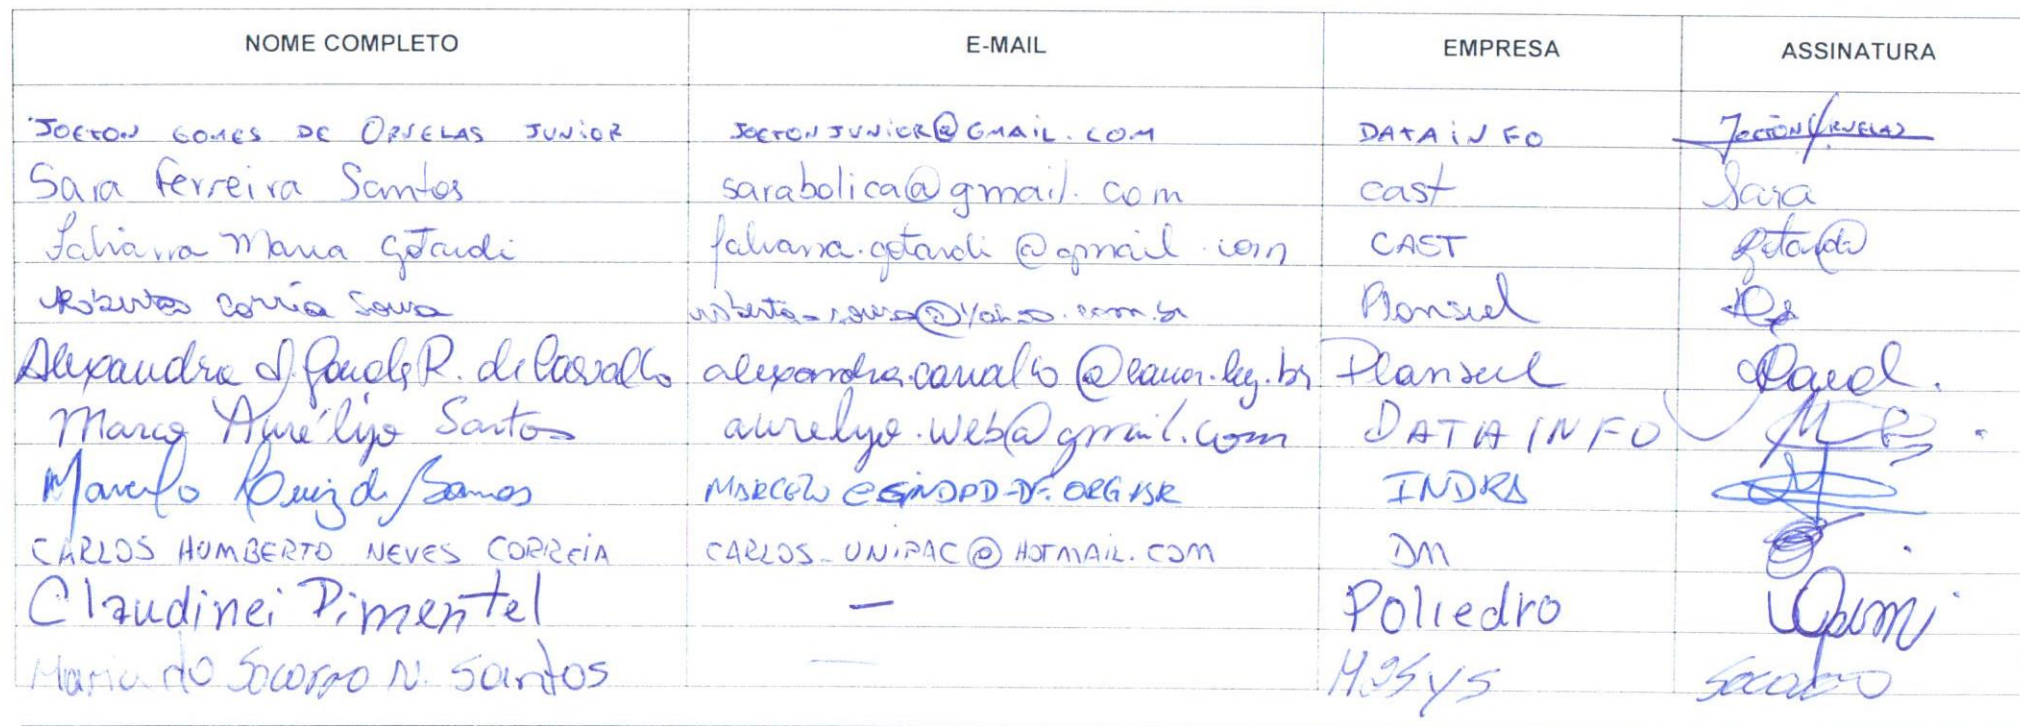 NOME COMPLETO E-MAIL EMPRESA ASSINATURA
JOCTON GOMES DE ORNELAS JUNIOR JOCTONJUNIOR@GMAIL.COM DATAINFO JOCTON ORNELAS
Sara Ferreira Santos sarabolica@gmail.com cast Sara
Fabiana Maria Gotardi fabiana.gotardi@gmail.com CAST Gotardi
Roberta Corrêa Sousa roberta_sousa@yahoo.com.br Plansul
Alexandra R. de Carvalho Plansul
Marco Aurélyo Santos aurelyo.web@gmail.com DATAINFO
Marcelo de Barros MARCELO@SINDPD-DF.ORG.BR INDRA
CARLOS HUMBERTO NEVES CORREIA CARLOS_UNIPAC@HOTMAIL.COM DM
Claudinei Pimentel — Poliedro
Maria do Socorro N. Santos — Socorro